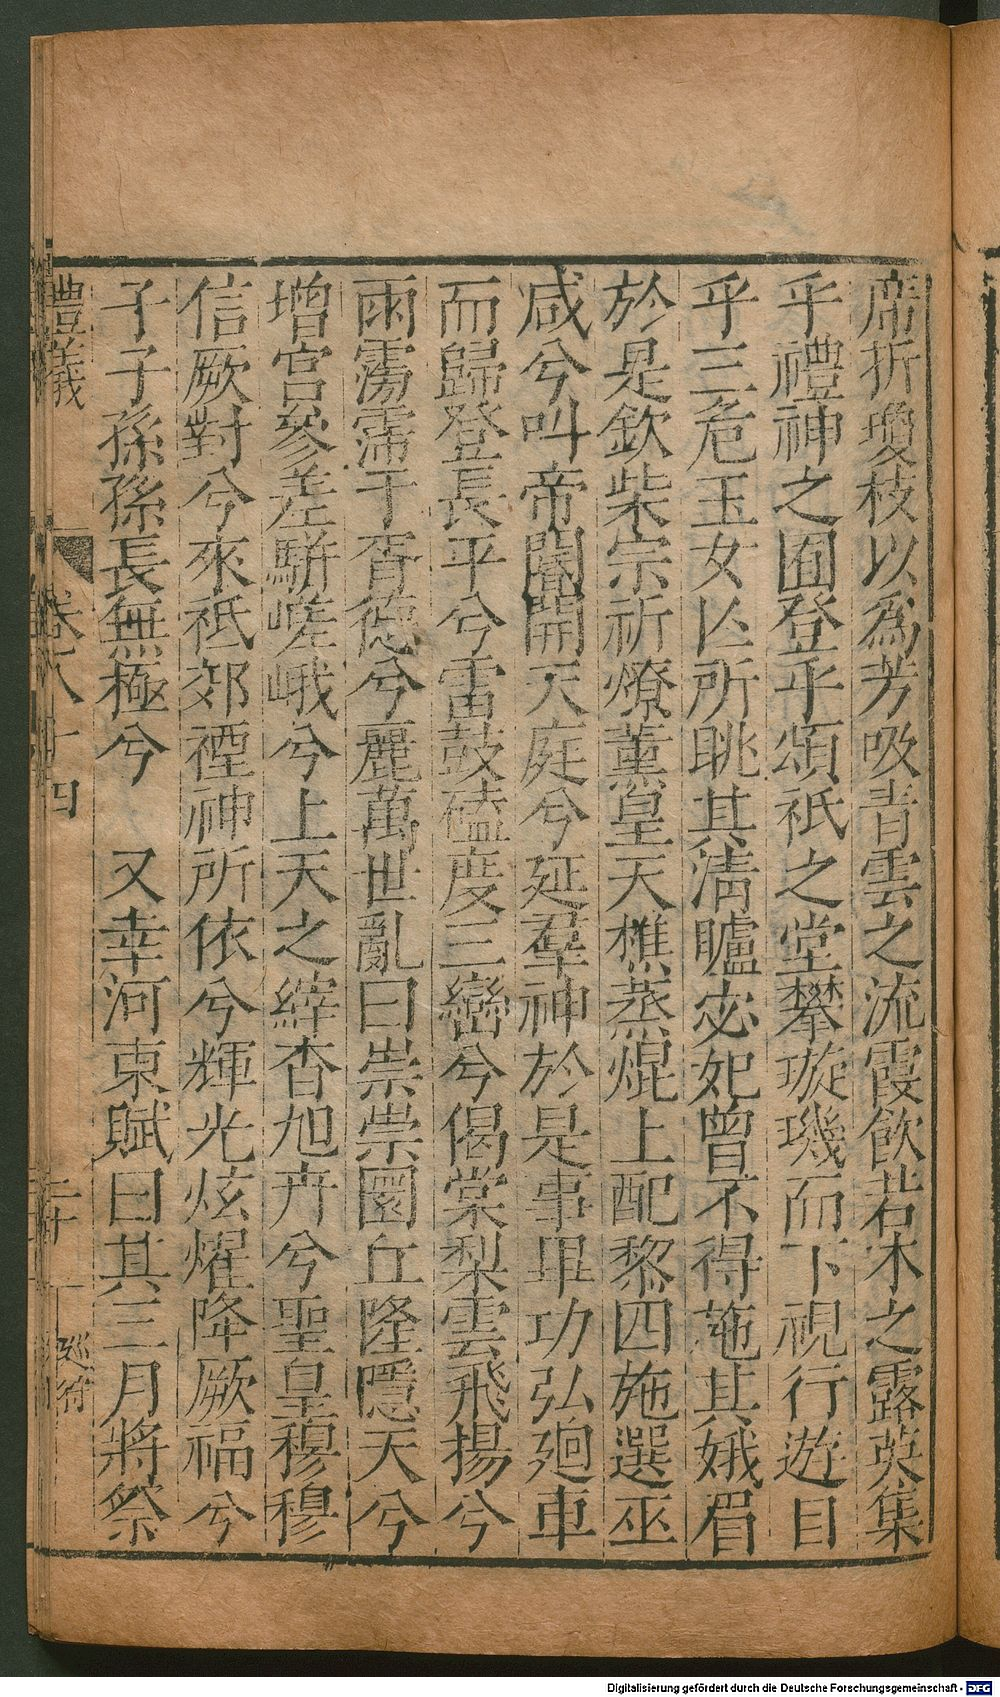 席折瓊枝以爲芳吸青雲之流霞飲若木之露英集
乎禮神之囿登乎頌祇之堂攀璇璣而下視行遊目
乎三危玉女亾所眺其清矑宓妃曾不得施其娥眉
於是欽柴宗祈燎薰皇天樵蒸焜上配黎四施選巫
咸兮叫帝閽開天庭兮延羣神於是事畢功弘廻車
而歸登長平兮雷鼓磕度三巒兮偈棠梨雲飛揚兮
雨霶霈于胥德兮麗萬世亂曰崇崇圜丘隆隱天兮
增宮參差駢嵯峨兮上天之縡杳旭卉兮聖皇穆穆
信厥對兮來祇郊禋神所依兮輝光炫燿降厥福兮
子子孫孫長無極兮　又幸河東賦曰其三月將祭
禮儀　卷八十四　二十　廵符
Digitalisierung gefördert durch die Deutsche Forschungsgemeinschaft - DFG